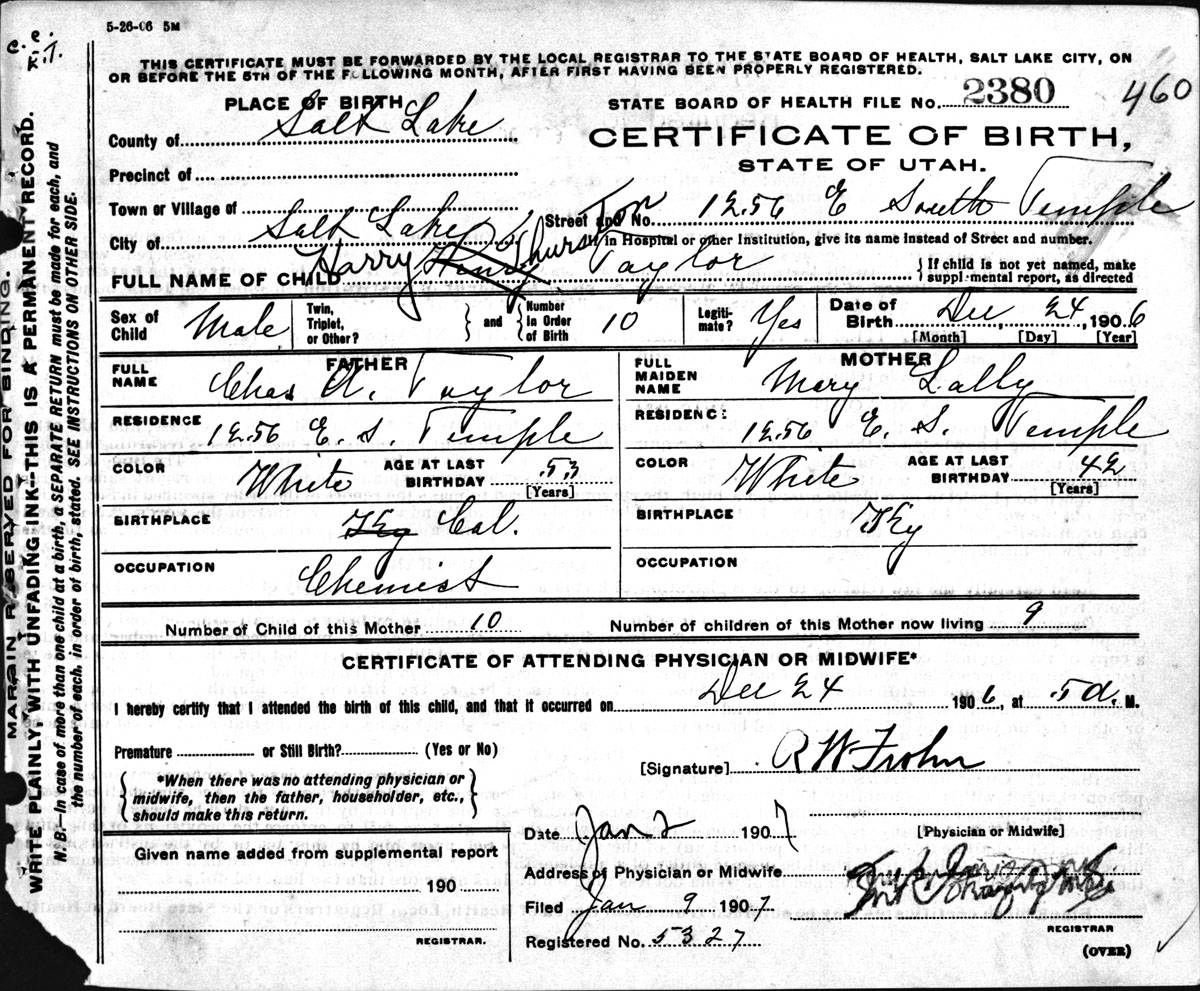 5-26-06 5M
C. C.
K. T.
THIS CERTIFICATE MUST BE FORWARDED BY THE LOCAL REGISTRAR TO THE STATE BOARD OF HEALTH, SALT LAKE CITY, ON
OR BEFORE THE 5TH OF THE FOLLOWING MONTH, AFTER FIRST HAVING BEEN PROPERLY REGISTERED.
PLACE OF BIRTH
STATE BOARD OF HEALTH FILE No. 2380 460
County of Salt Lake
CERTIFICATE OF BIRTH,
STATE OF UTAH.
Precinct of
Town or Village of
Street and No. 1256 E South Temple
City of Salt Lake
[If in Hospital or other Institution, give its name instead of Street and number.
FULL NAME OF CHILD Harry Henry Thurston Taylor
{If child is not yet named, make
supplemental report, as directed
Sex of Child Male
Twin, Triplet, or Other? } and { Number in Order of Birth 10
Legitimate? Yes
Date of Birth Dec 24, 1906
[Month] [Day] [Year]
FATHER
FULL NAME Chas A. Taylor
RESIDENCE 1256 E. S. Temple
COLOR White AGE AT LAST BIRTHDAY 53
[Years]
BIRTHPLACE Ky Cal.
OCCUPATION Chemist
MOTHER
FULL MAIDEN NAME Mary Lally
RESIDENCE 1256 E. S. Temple
COLOR White AGE AT LAST BIRTHDAY 42
[Years]
BIRTHPLACE Ky
OCCUPATION
Number of Child of this Mother 10 Number of children of this Mother now living 9
CERTIFICATE OF ATTENDING PHYSICIAN OR MIDWIFE*
I hereby certify that I attended the birth of this child, and that it occurred on Dec 24 1906, at 5 a. M.
Premature or Still Birth? (Yes or No)
[Signature] R W
{*When there was no attending physician or
midwife, then the father, householder, etc.,
should make this return.}
Date Jan 2 1907
[Physician or Midwife]
Given name added from supplemental report
190
REGISTRAR.
Address of Physician or Midwife
Filed Jan 9 1907
REGISTRAR
Registered No. 5327
(OVER)
MARGIN RESERVED FOR BINDING.
WRITE PLAINLY, WITH UNFADING INK—THIS IS A PERMANENT RECORD.
N. B.—In case of more than one child at a birth, a SEPARATE RETURN must be made for each, and
the number of each, in order of birth, stated. SEE INSTRUCTIONS ON OTHER SIDE.